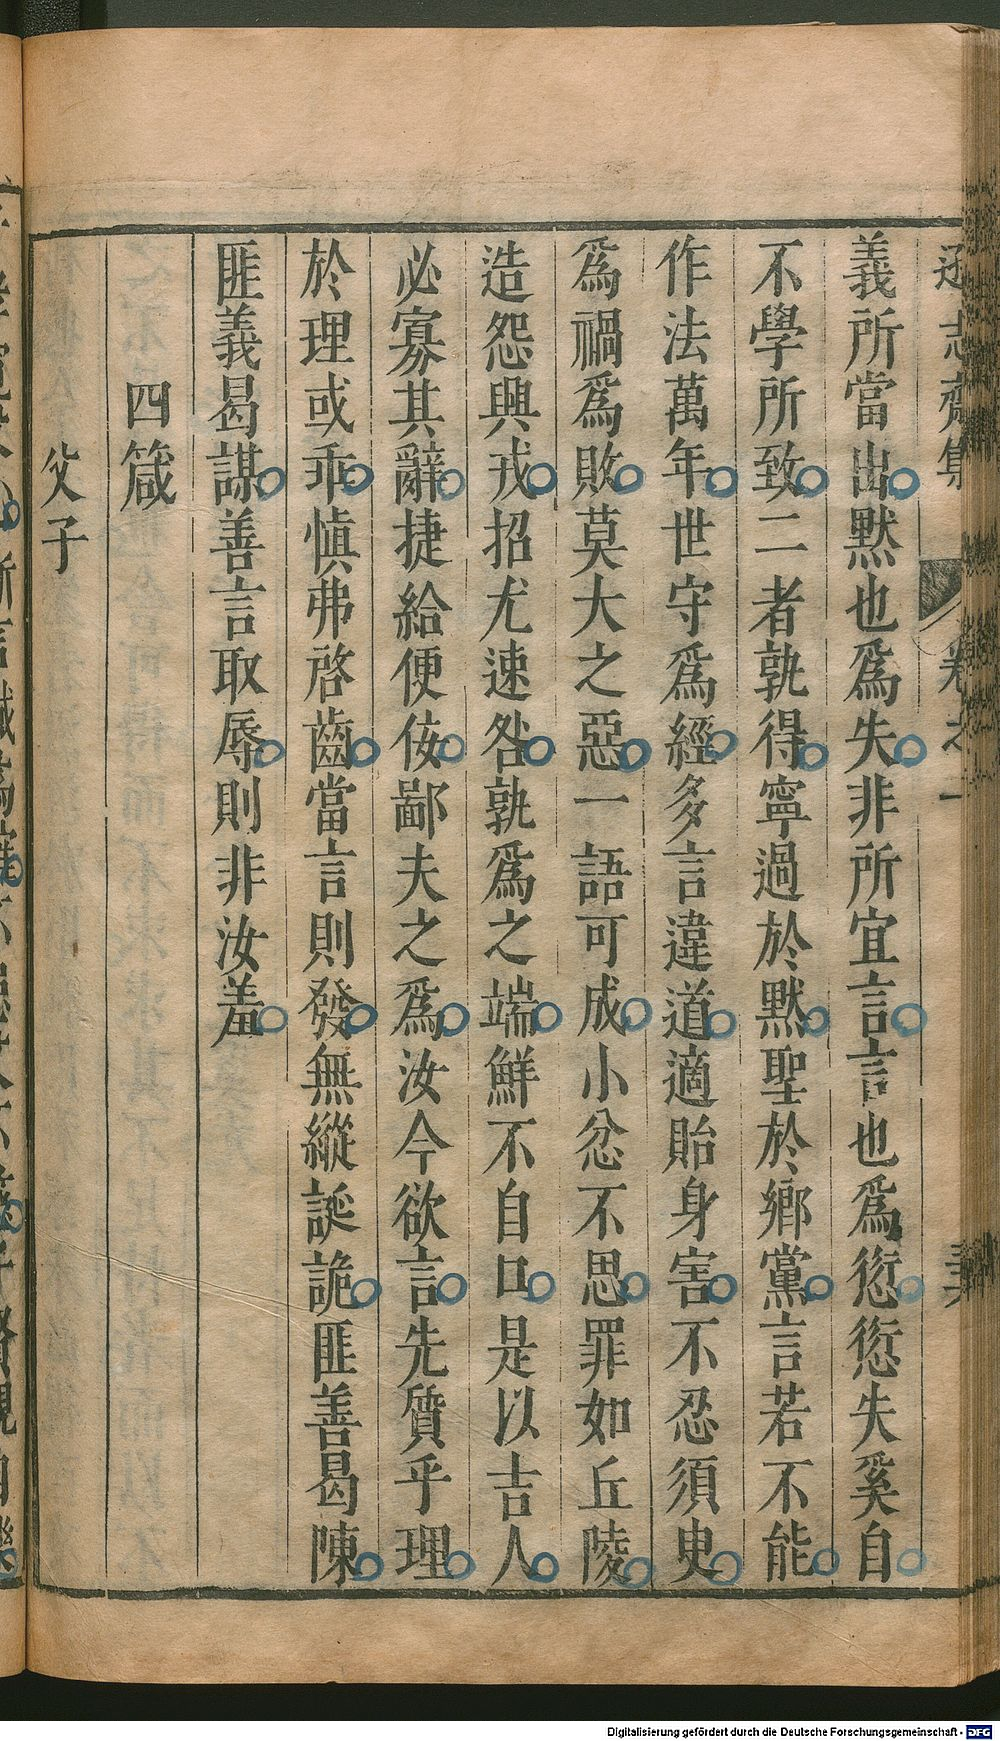 義所當出默也爲失非所宜言言也爲愆愆失奚自
不學所致二者孰得寧過於默聖於鄉黨言若不能
作法萬年世守爲經多言違道適貽身害不忍須臾
爲禍爲敗莫大之惡一語可成小忿不思罪如丘陵
造怨興戎招尤速咎孰爲之端鮮不自口是以吉人
必寡其辭捷給便佞鄙夫之爲汝今欲言先質乎理
於理或乖慎弗啓齒當言則發無縱誕詭匪善曷陳
匪義曷謀善言取辱則非汝羞
四箴
父子
Digitalisierung gefördert durch die Deutsche Forschungsgemeinschaft - DFG